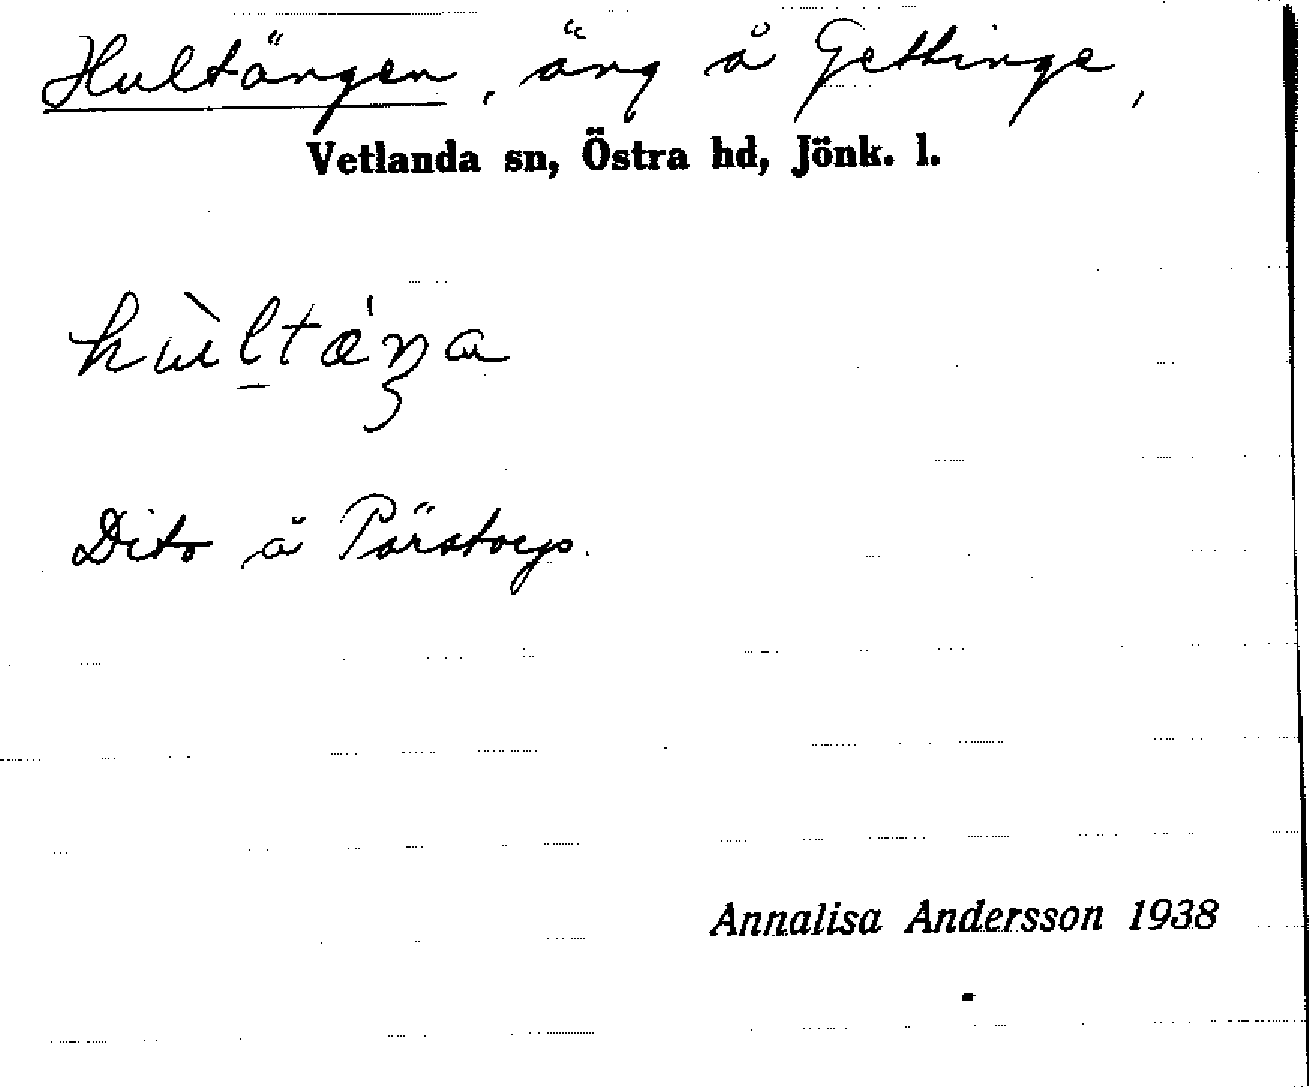 Hultängen, äng å Gettinge,
Vetlanda sn, Östra hd, Jönk. l.
hùltǽŋa
Dito å Pärstorp.
Annalisa Andersson 1938